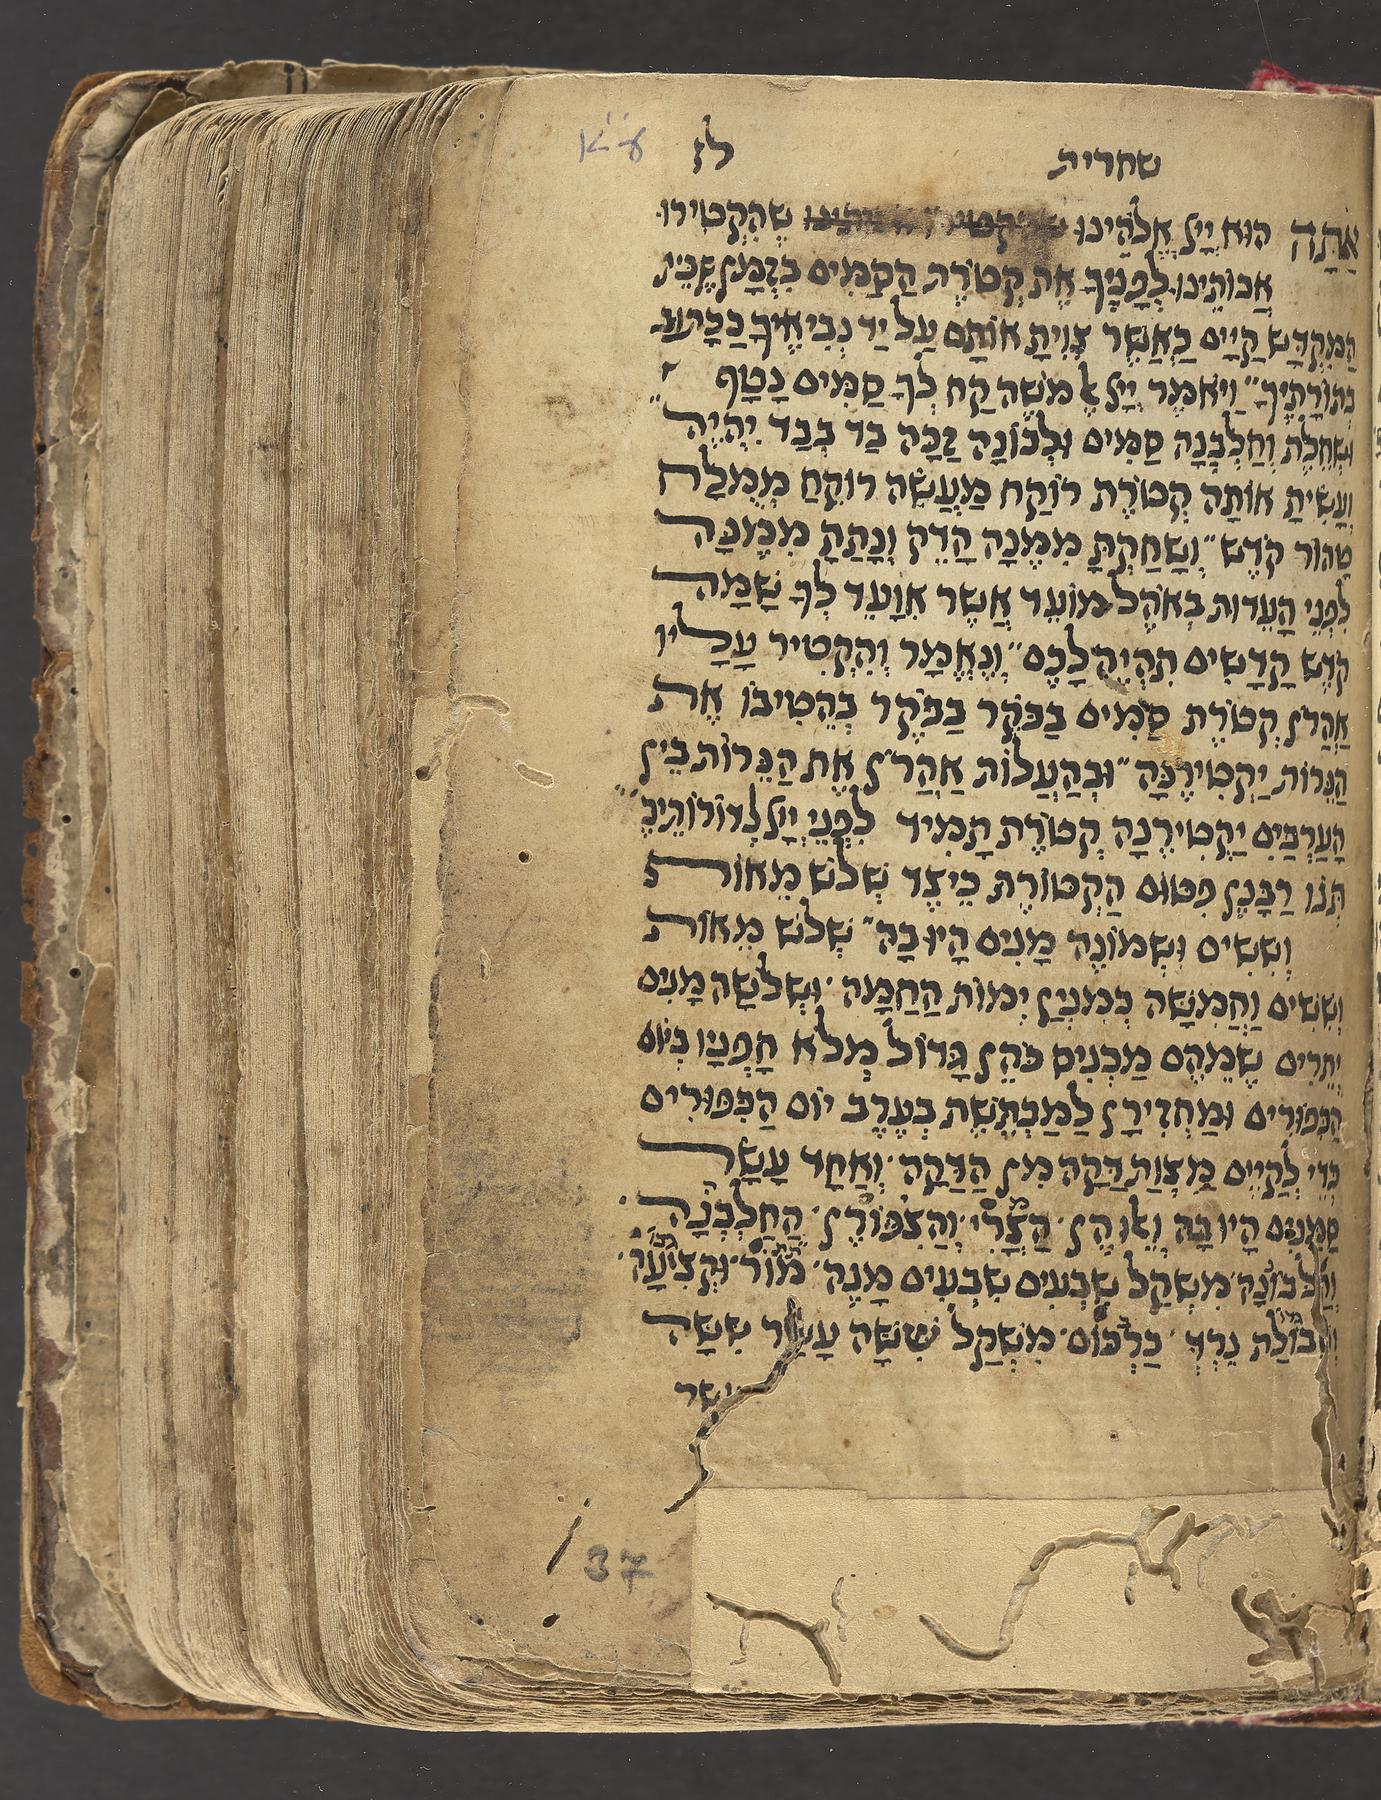 שחרית לז ע״א
אַתָּה הוּא יְיָ אֱלֹהֵינוּ שֶׁהִקְטִירוּ
אֲבוֹתֵינוּ לְפָנֶיךָ אֶת קְטוֹרֶת הַסַּמִּים בִּזְמָן שֶׁבֵּית
הַמִּקְדָּשׁ קַיָּים כַּאֲשֶׁר צִוִּיתָ אוֹתָם עַל יַד נְבִיאֶיךָ כַּכָּתוּב
בְּתוֹרָתֶיךָ״ וַיֹּאמֶר יְיָ אֶל מֹשֶׁה קַח לְךָ סַמִּים נָטָף
וּשְׁחֵלֶת וְחֶלְבְּנָה סַמִּים וּלְבוֹנָה זַכָּה בַּד בְּבַד יִהְיֶה
וְעָשִׂיתָ אוֹתָהּ קְטוֹרֶת רוֹקַח מַעֲשֵׂה רוֹקֵחַ מְמֻלָּח
טָהוֹר קֹדֶשׁ״ וְשָׁחַקְתָּ מִמֶּנָה הָדֵק וְנָתַתָּ מִמֶּנָּה
לִפְנֵי הָעֵדוּת בְּאֹהֶל מוֹעֵד אֲשֶׁר אִוָּעֵד לְךָ שָׁמָּה
קֹדֶשׁ קָדָשִׁים תִּהְיֶה לָכֶם״ וְנֶאֱמָר וְהִקְטִיר עָלָיו
אַהֲרֹן קְטוֹרֶת סַמִּים בַּבֹּקֶר בַּבֹּקֶר בְּהֵטִיבוֹ אֶת
הַנֵּרוֹת יַקְטִירֶנָּה״ וּבְהַעֲלוֹת אַהֲרֹן אֶת הַנֵּרוֹת בֵּין
הָעַרְבַּיִם יַקְטִירֶנָה קְטוֹרֶת תָּמִיד לִפְנֵי יְיָ לְדוֹרוֹתֵיכֶ
תְּנוּ רַבָּנָן פִּטּוּם הַקְּטוֹרֶת כֵּיצֶד שְׁלֹשׁ מֵאוֹת
וְשִׁשִּׁים וּשְׁמוֹנֶה מָנִים הָיוּ בָהּ״ שְׁלֹשׁ מֵאוֹת
וְשִׁשִּׁים וַחֲמִשָּׁה כְּמִנְיַן יְמוֹת הַחַמָּה וּשְׁלֹשָׁה מָנִים
יְתֵרִים שֶׁמֵּהֶם מַכְנִיס כֹּהֵן גָּדוֹל מְלֹא חָפְנָיו בְּיוֹם
הַכִּפּוּרִים וּמַחֲזִירָן לַמַּכְתֶּשֶׁת בְּעֶרֶב יוֹם הַכִּפּוּרִים
כְּדֵי לְקַיֵּים מִצְוַת דַּקָּה מִן הַדַּקָּה וְאַחַד עָשָׂר
סַמָּנִים הָיוּ בָהּ וְאֵלּוּ הֵן הַצֳּרִי וְהַצִּפּוֹרֶן הַחֶלְבְּנָה
וְהַלְּבוֹנָה מִשְׁקַל שִׁבְעִים שִׁבְעִים מָנֶה מוֹר וּקְצִיעָה
וְשִׁבּוֹלֶת נֵרְדְּ כַּרְכּוֹם מִשְׁקַל שִׁשָּׁה עָשָׂר שִׁשָּׁה
עשר
37